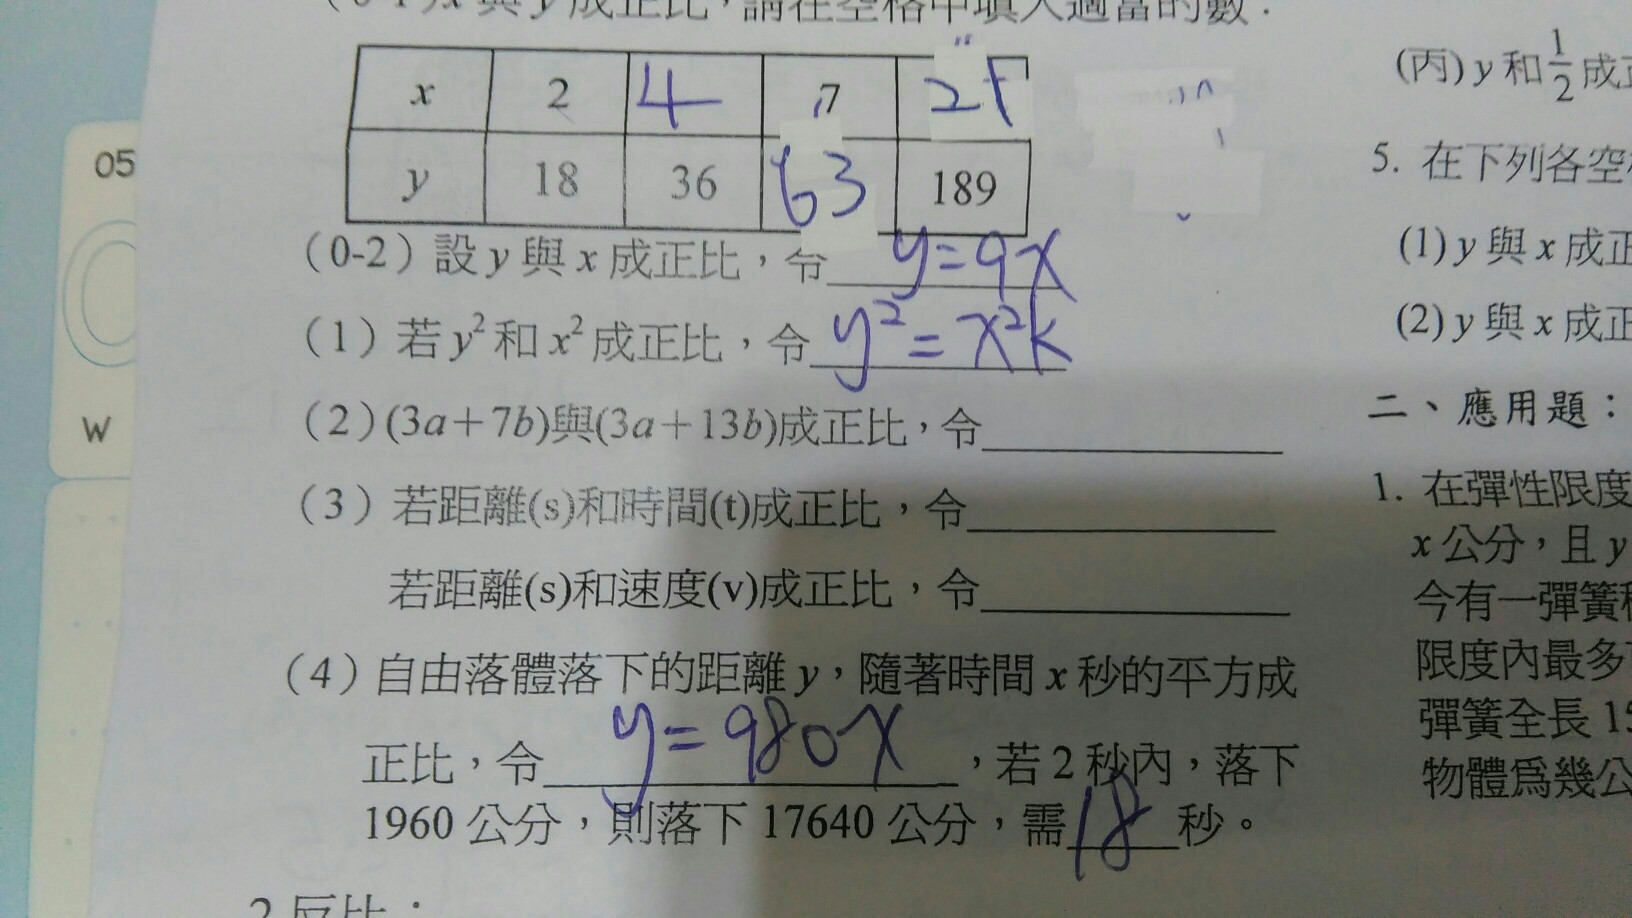 (0-1) x 與 y 成正比，請在空格中填入適當的數：
x 2 4 7 21
y 18 36 63 189
（0-2）設 y 與 x 成正比，令 y=9x
（1）若 y² 和 x² 成正比，令 y²=x²k
（2）(3a＋7b)與(3a＋13b)成正比，令
（3）若距離(s)和時間(t)成正比，令
若距離(s)和速度(v)成正比，令
（4）自由落體落下的距離 y，隨著時間 x 秒的平方成
正比，令 y=980x ，若 2 秒內，落下
1960 公分，則落下 17640 公分，需 18 秒。
2 反比：
(丙) y 和 1/2 成
5. 在下列各空
(1) y 與 x 成正
(2) y 與 x 成正
二、應用題：
1. 在彈性限度
x 公分，且 y
今有一彈簧
限度內最多
彈簧全長 15
物體爲幾公
05
W